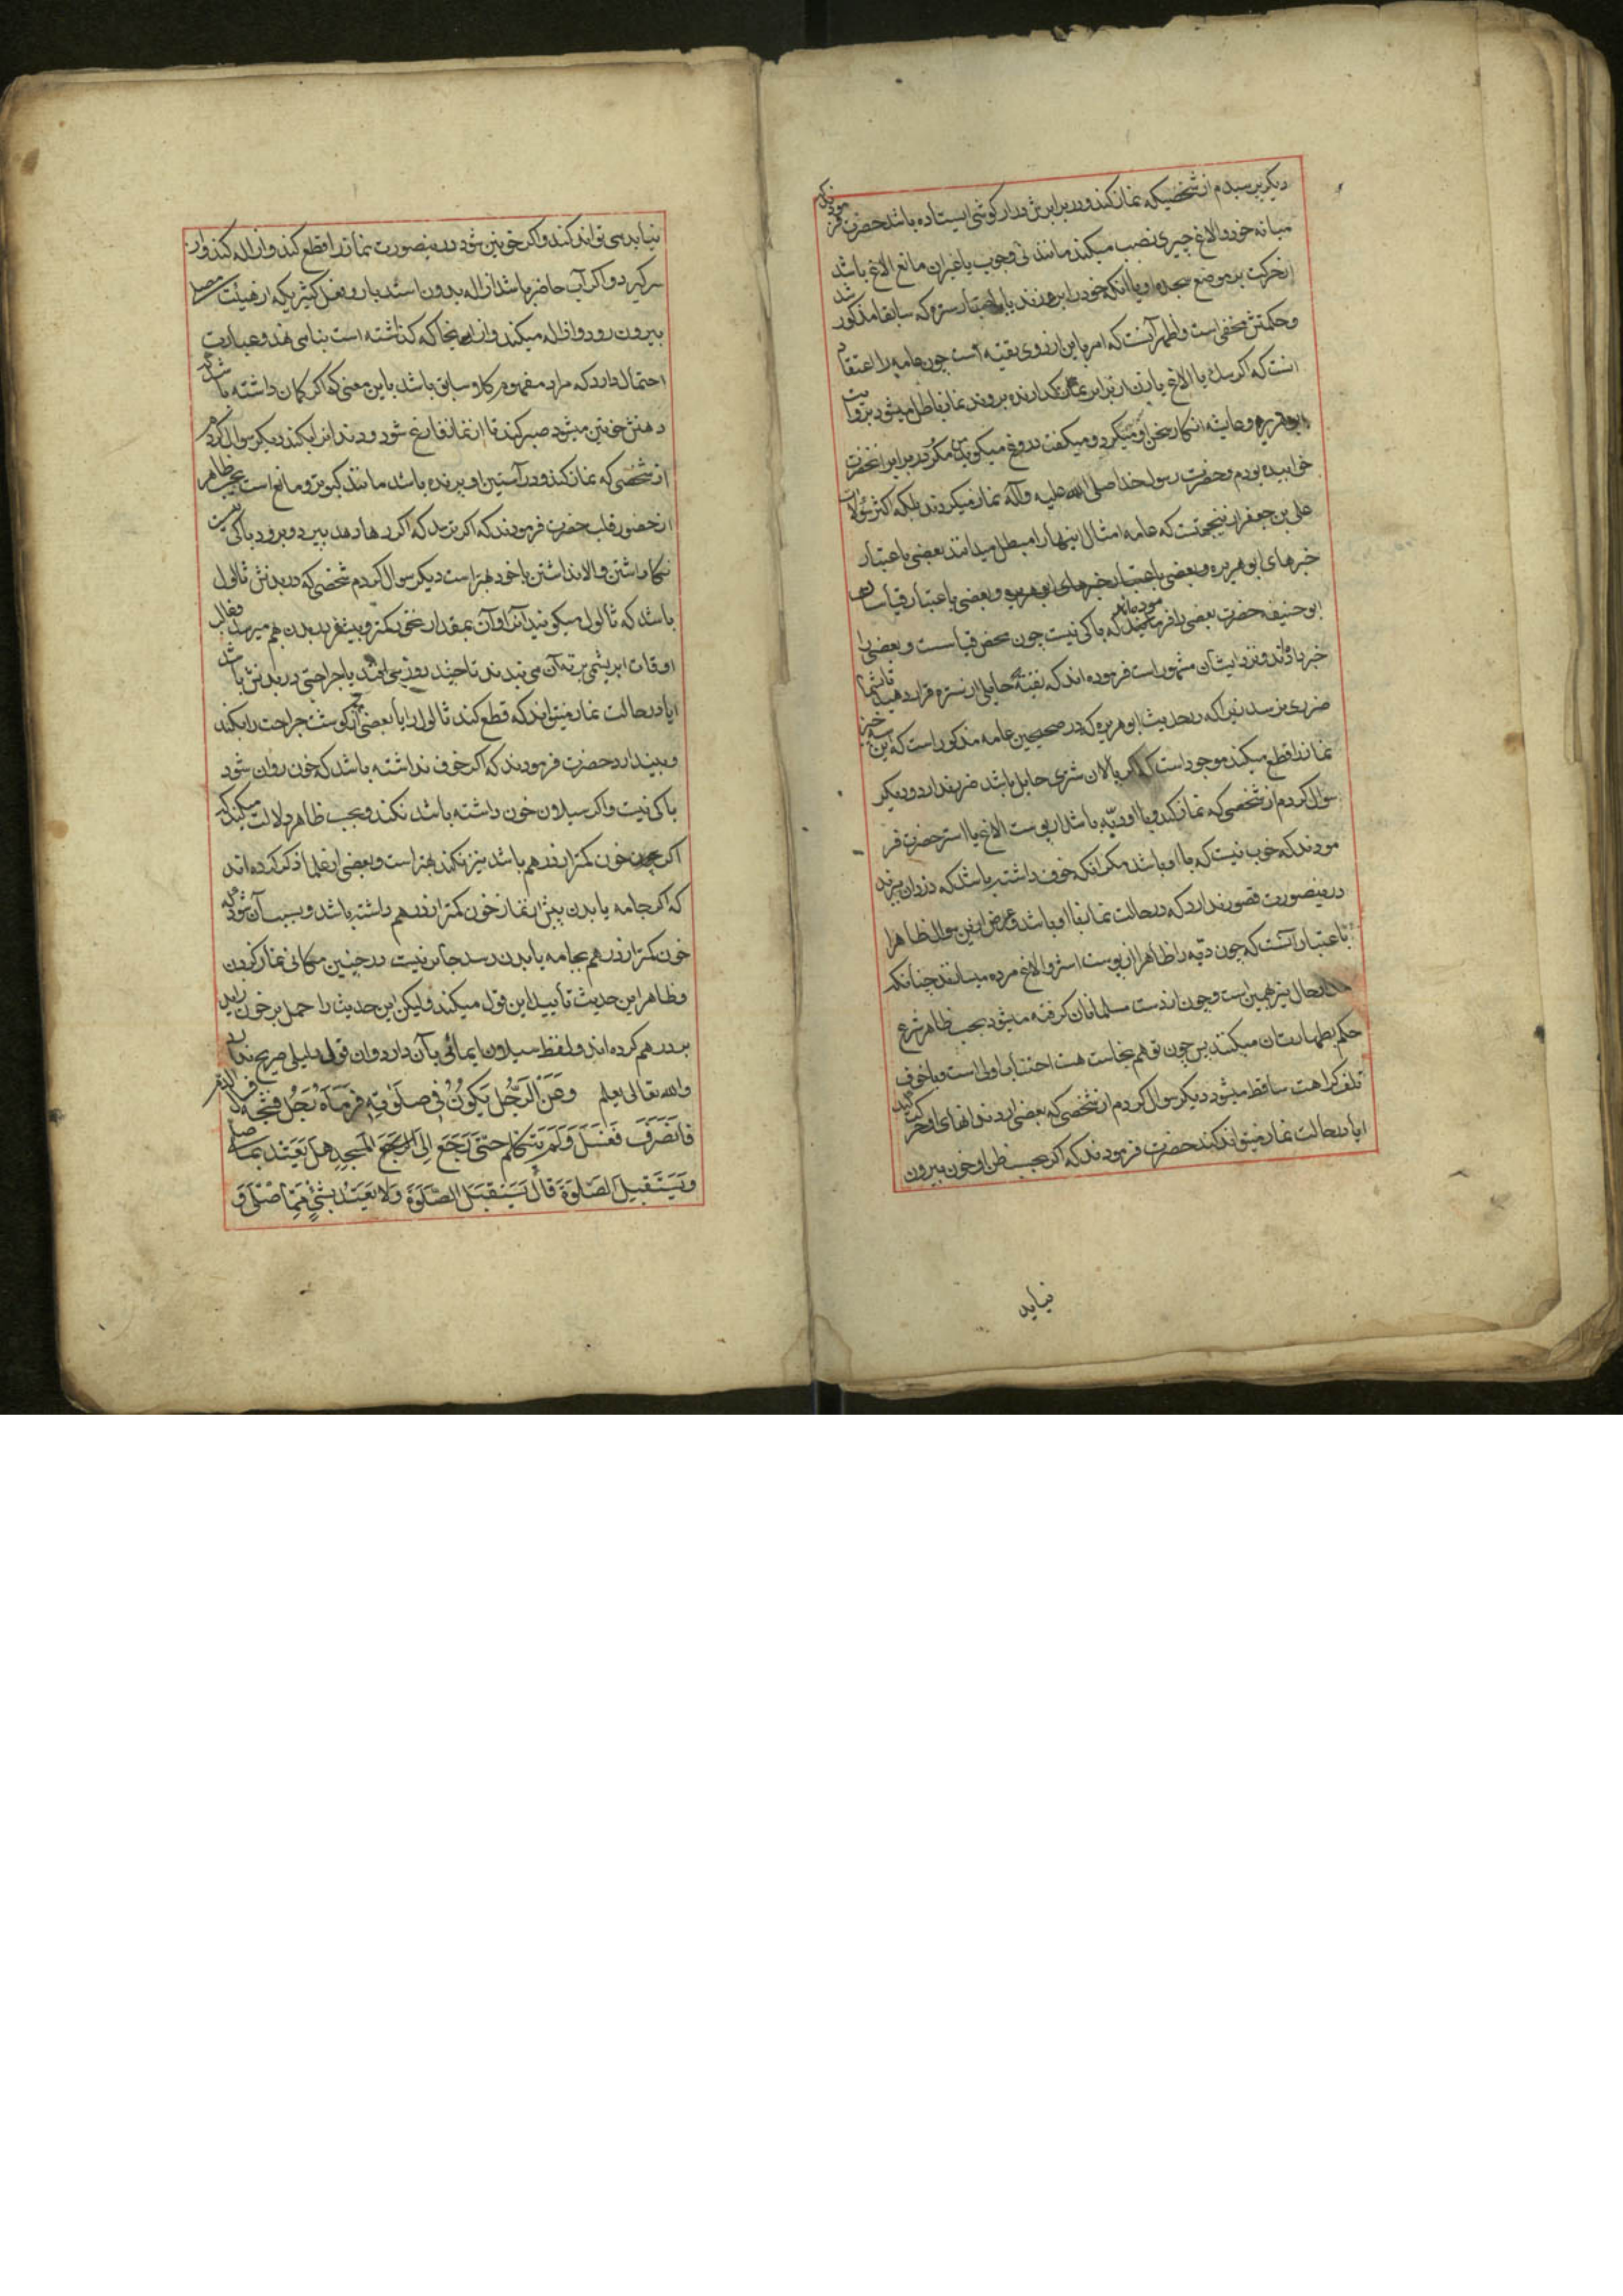 دیکر پرسیدم از شخصیکه نماز کند و در برابرش دراز کوشی ایستاده باشد حضرت فرمودند که
میانه خود و الاغ چیزی نصب میکند مانند نی و چوب یا غیر ان مانع الاغ باشد
از حرکت بر موضع سجده او یا انکه خود را برهم زند یا باعتبار ستره که سابقا مذکور شد
و حکمتش مخفی است و اظهر آنست که امر باین از روی تقیه است چون عامه را اعتقاد
انست که اکر سک یا الاغ یا زن از برابر نماز کذارنده بروند نماز باطل میشود بروایت
ابو هریره و عایشه انکار سخن او میکرد و میکفت دروغ میکوید من مکرر در برابر انحضرت
خوابیده بودم و حضرت رسول خدا صلی الله علیه و آله نماز میکردند بلکه اکثر سؤالات
علی بن جعفر ازینجهتست که عامه امثال اینها را مبطل میدانند بعضی باعتبار
خبرهای ابو هریره و بعضی باعتبار خبرهای ابو هریره و بعضی باعتبار قیاسات
ابو حنیفه حضرت بعضی را فرموده اند که باکی نیست چون محض قیاسست و بعضی را
خبر داده‌اند و نزد ایشان مشهور است فرموده اند که تقیة حایلی از ستره قرار دهید تا بشما
ضرری نرسد زیرا که در حدیث ابو هریره که در صحیحین عامه مذکور است که این سه چیز
نماز را قطع میکند موجود است که اکر پالان شتری حایل باشد ضرر ندارد و دیکر
سؤال کردم از شخصی که نماز کند و با او دبّه باشد از پوست الاغ یا استر حضرت فر
مودند که خوب نیست که با او باشد مکر انکه خوف داشته باشد که دزدان ببرند
درینصورت قصور ندارد که در حالت نماز با او باشد و غرض ازین سوال ظاهرا
باعتبار آنست که چون دبه را ظاهرا از پوست استر و الاغ مرده میسازند چنانکه
الحال نیز همین است و چون از دست مسلمانان کرفته میشود بحسب ظاهر شرع
حکم بطهارتان میکنند پس چون توهم نجاست هست اجتناب اولی است و با خوف
تلف کراهت ساقط میشود دیکر سوال کردم از شخصی که بعضی از دندانهای او حرکت کند
ایا در حالت نماز میتواند کند حضرت فرمودند که اکر بحسب ظن او خون بیرون
نیاید
نیاید می تواند کند و اکر خونین شود درینصورت نماز را قطع کند و ازاله کند و از
سر کیرد و اکر آب حاضر باشد ازاله بدون استدبار و فعل کثیر یکه از هیئت مصلی
بیرون رود و ازاله میکند و از اینجا که کذاشته است بنا می نهد و عبارت
احتمال دارد که مراد مفهوم کلام سابق باشد باین معنی که اکر کمان داشته باشد که
دهنش خونین میشود صبر کند تا از نماز فارغ شود و دندانرا بکند دیکر سوال کردم
از شخصی که نماز کند و در آستین او پرنده باشد مانند کبوتر و مانع است بحسب ظاهر
از حضور قلب حضرت فرمودند که اکر ترسد که اکر رها دهد بپرد و برود باکی نیست
نکاه داشتن و الا نداشتن با خود بهتر است دیکر سوال کردم شخصی که در بدنش ثالول
باشد که ثالول میکویند آنرا و آن بمقدار نخود کمتر و بیشتر در بدن بهم میرسد و غالب
اوقات ابریشمی بر ته آن می بندند تا چند روز می افتد یا جراحتی در بدنش باشد
ایا در حالت نماز میتواند که قطع کند ثالول را یا بعضی از کوشت جراحت را بکند
و بیندازد حضرت فرمودند که اکر خوف نداشته باشد که خون روان شود
باکی نیست و اکر سیلان خون داشته باشد نکند و بحسب ظاهر دلالت میکند که
اکر چون خون کمتر از درهم باشد نیز نکند بهتر است و بعضی از علما ذکر کرده اند
که اکر جامه یا بدن پیش از نماز خون کمتر از درهم داشته باشد و بسبب آن شود که
خون کمتر از درهم بجامه یا بدن رسد جایز نیست در چنین مکانی نماز کردن
و ظاهر این حدیث تایید این قول میکند و لیکن این حدیث را حمل بر خون زاید
بر درهم کرده اند و لفظ سیلان ایمائی بآن دارد و ان قول دلیلی صریح ندارد
والله تعالی یعلم وَعَنِ الرَّجُلِ یَکُونُ فی صَلوتِهِ فَرَماهُ رَجُلٌ فَشَجَّهُ فسال الدم
فَانْصَرَفَ فَغَسَلَ وَلَمْ یَتَکَلَّمْ حَتّی رَجَعَ اِلَی المَسْجِدِ هَلْ یَعْتَدُّ بِما صلی
وَیَسْتَقْبِلُ الصَّلوةَ قالَ یَسْتَقْبِلُ الصَّلوةَ وَلا یَعْتَدُّ بِشَیْءٍ مِمّا صَلّی وَ